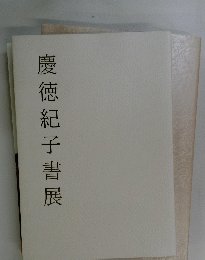 慶徳紀子書展